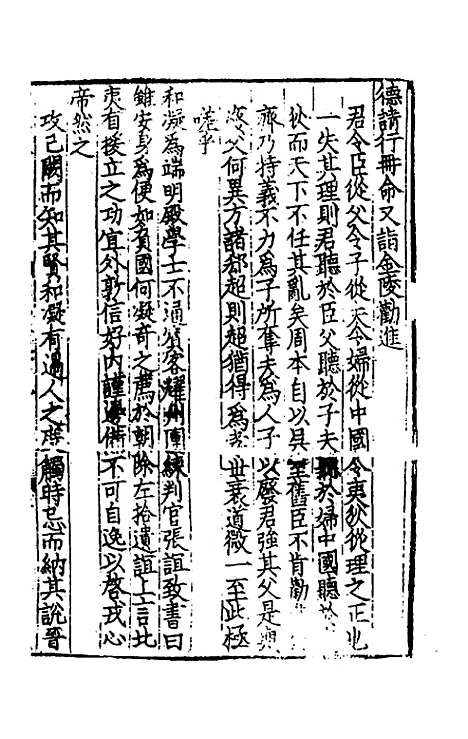 德請行冊命又詣金陵勸進
君令臣從父令子從夫令婦從中國令夷狄從理之正也
一失其理則君聽於臣父聽於子夫聽於婦中國聽於
狄而天下不任其亂矣周本自以具舊臣不肯勸
齊乃持義不力為子所奪夫為人子以廢君強其父是與
父何異方諸郗超則超猶得為世衰道微一至此極
嗟乎
和凝為端明殿學士不通賓客耀州團練判官張誼致書曰
雖安身為便如負國何凝奇之薦於朝除左拾遺誼上言北
夷有援立之功宜外敦信好內謹邊備不可自逸以啓戎心
帝然之
攻己闕而知其賢和凝有過人之度觸時忌而納其說晉